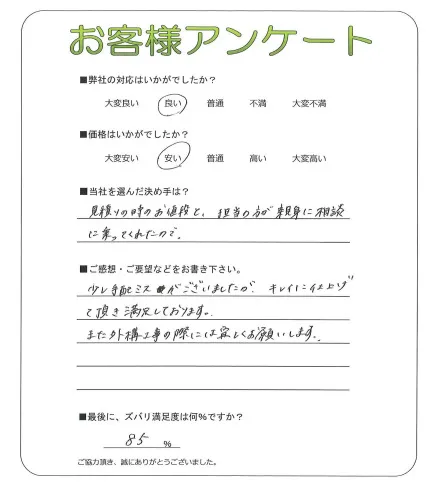 お客様アンケート
■弊社の対応はいかがでしたか？
大変良い 良い 普通 不満 大変不満
■価格はいかがでしたか？
大変安い 安い 普通 高い 大変高い
■当社を選んだ決め手は？
見積りの時のお値段と、担当の方が親身に相談
に乗ってくれたので。
■ご感想・ご要望などをお書き下さい。
少し手配ミスがございましたが、キレイに仕上げ
て頂き満足しております。
また外構工事の際には宜しくお願いします。
■最後に、ズバリ満足度は何％ですか？
85 %
ご協力頂き、誠にありがとうございました。